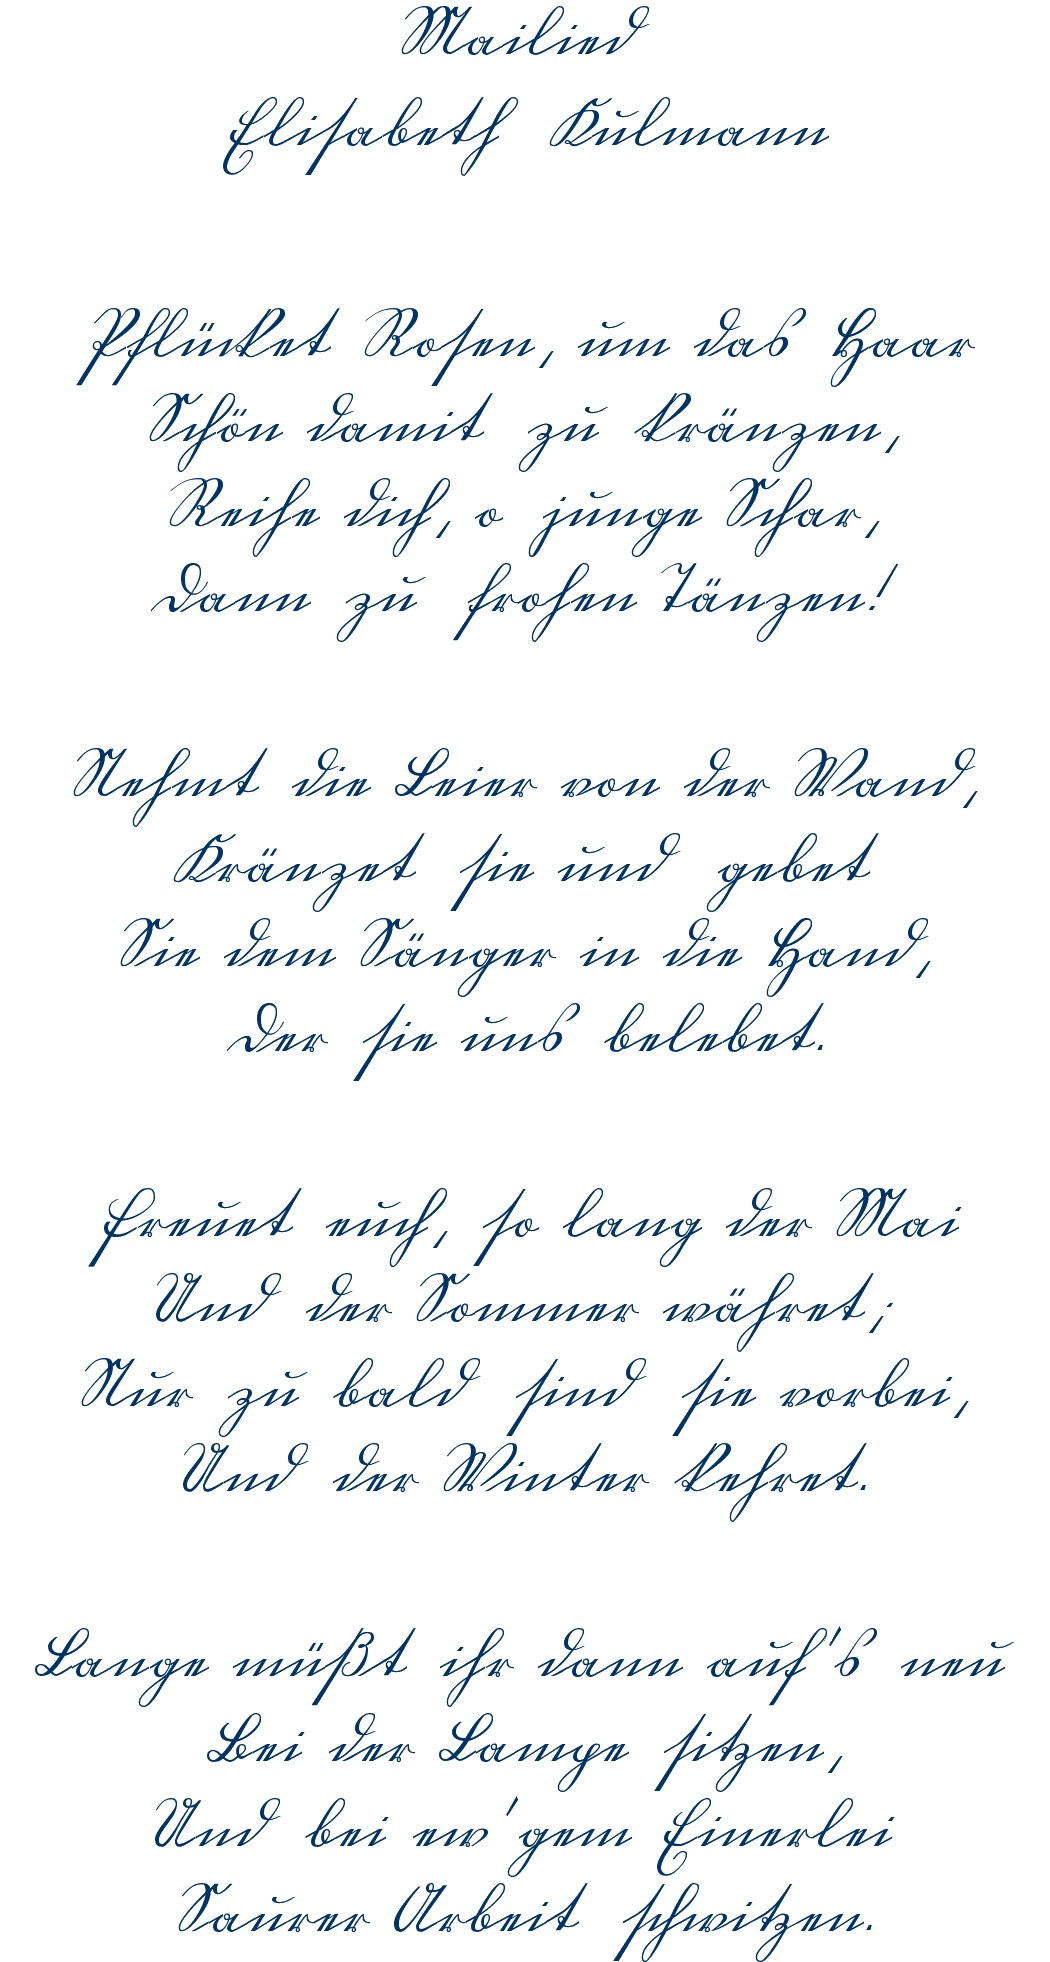 Mailied
Elisabeth Kulmann
Pflücket Rosen, um das Haar
Schön damit zu kränzen,
Reihe dich, o junge Schar,
Dann zu frohen Tänzen!
Nehmt die Leier von der Wand,
Kränzet sie und gebet
Sie dem Sänger in die Hand,
Der sie uns belebet.
Freuet euch, so lang der Mai
Und der Sommer währet;
Nur zu bald sind sie vorbei,
Und der Winter kehret.
Lange müßt ihr dann auf's neu
Bei der Lampe sitzen,
Und bei ew'gem Einerlei
Saurer Arbeit schwitzen.